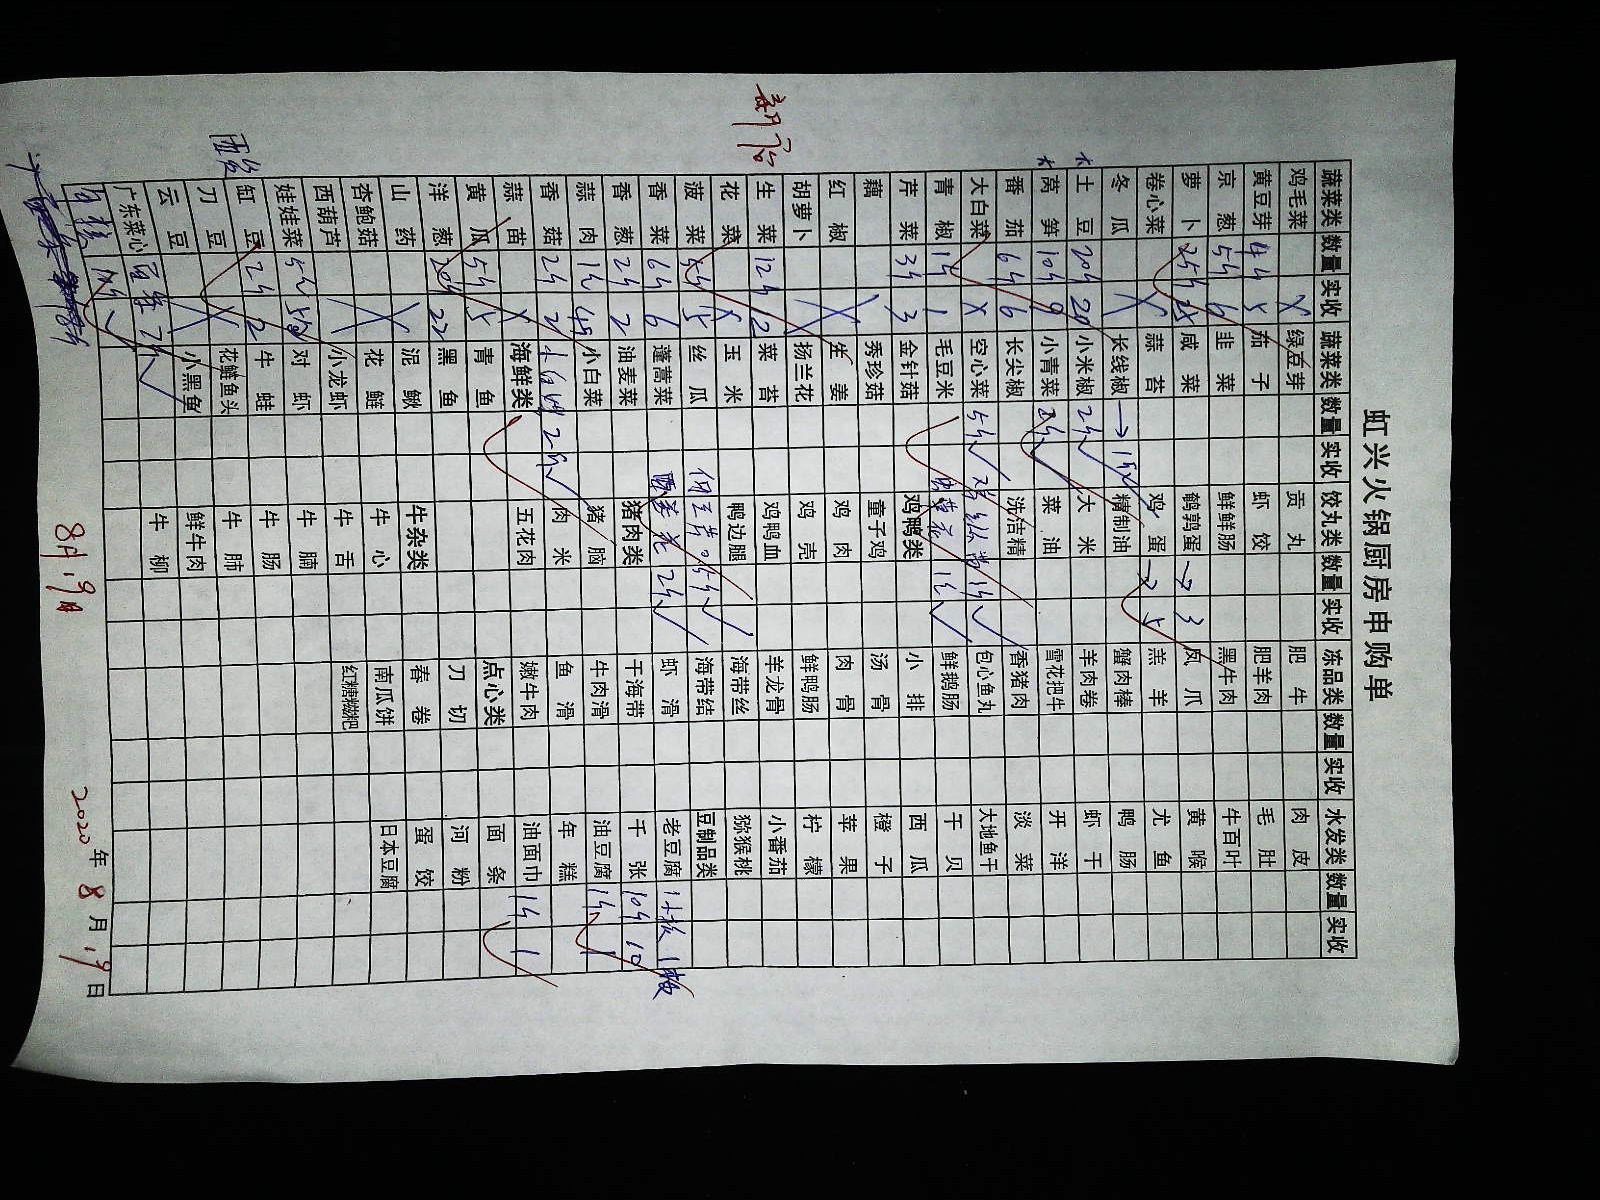 虹兴火锅厨房申购单
蔬菜类 数量 实收 蔬菜类 数量 实收 饺丸类 数量 实收 冻品类 数量 实收 水发类 数量 实收
鸡毛菜 X 绿豆芽 贡丸 肥牛 肉皮
黄豆芽 4斤 5 茄子 虾饺 肥羊肉 毛肚
京葱 5斤 6 韭菜 鲜鲜肠 黑牛肉 牛百叶
萝卜 25斤 25 咸菜 鹌鹑蛋 → 3 凤爪 黄喉
卷心菜 X 蒜苔 鸡蛋 → 5 羔羊 尤鱼
冬瓜 X 长线椒 → 1斤 精制油 蟹肉棒 鸭肠
土豆 20斤 20 小米椒 2斤 ✓ 大米 羊肉卷 虾干
莴笋 10斤 9 小青菜 ✓ 菜油 雪花把牛 开洋
番茄 6斤 6 长尖椒 洗洁精 香猪肉 淡菜
大白菜 X 空心菜 5斤 ✓ 1斤 ✓ 包心鱼丸 大地鱼干
青椒 1斤 1 毛豆米 虫草花 1斤 ✓ 鲜鹅肠 干贝
芹菜 3斤 3 金针菇 鸡鸭类 小排 西瓜
藕 秀珍菇 童子鸡 汤骨 橙子
红椒 X 生姜 鸡肉 肉骨 苹果
胡萝卜 杨兰花 鸡壳 鲜鸭肠 柠檬
生菜 12斤 12 菜苔 鸡鸭血 羊龙骨 小番茄
花菜 X 玉米 鸭边腿 海带丝 猕猴桃
菠菜 5斤 5 丝瓜 5斤 ✓ 海带结 豆制品类
香菜 6斤 6 蓬蒿菜 2斤 ✓ 虾滑 老豆腐 1板
香葱 2斤 2 油麦菜 猪肉类 干海带 千张 10斤 10
蒜肉 1斤 小白菜 猪脑 牛肉滑 油豆腐 1斤 1
香菇 2斤 2 2斤 ✓ 肉米 鱼滑 年糕
蒜苗 X 海鲜类 五花肉 嫩牛肉 油面巾 1斤 1
黄瓜 5斤 5 青鱼 点心类 面条
洋葱 20斤 22 黑鱼 刀切 河粉
山药 X 泥鳅 牛杂类 春卷 蛋饺
杏鲍菇 X 花鲢 牛心 南瓜饼 日本豆腐
西葫芦 小龙虾 牛舌 红糖糍粑
娃娃菜 5斤 对虾 牛腩
缸豆 2斤 2 牛蛙 牛肠
刀豆 X 花鲢鱼头 牛肺
云豆 X 小黑鱼 鲜牛肉
广东菜心 牛柳
2020年8月19日
8月19日